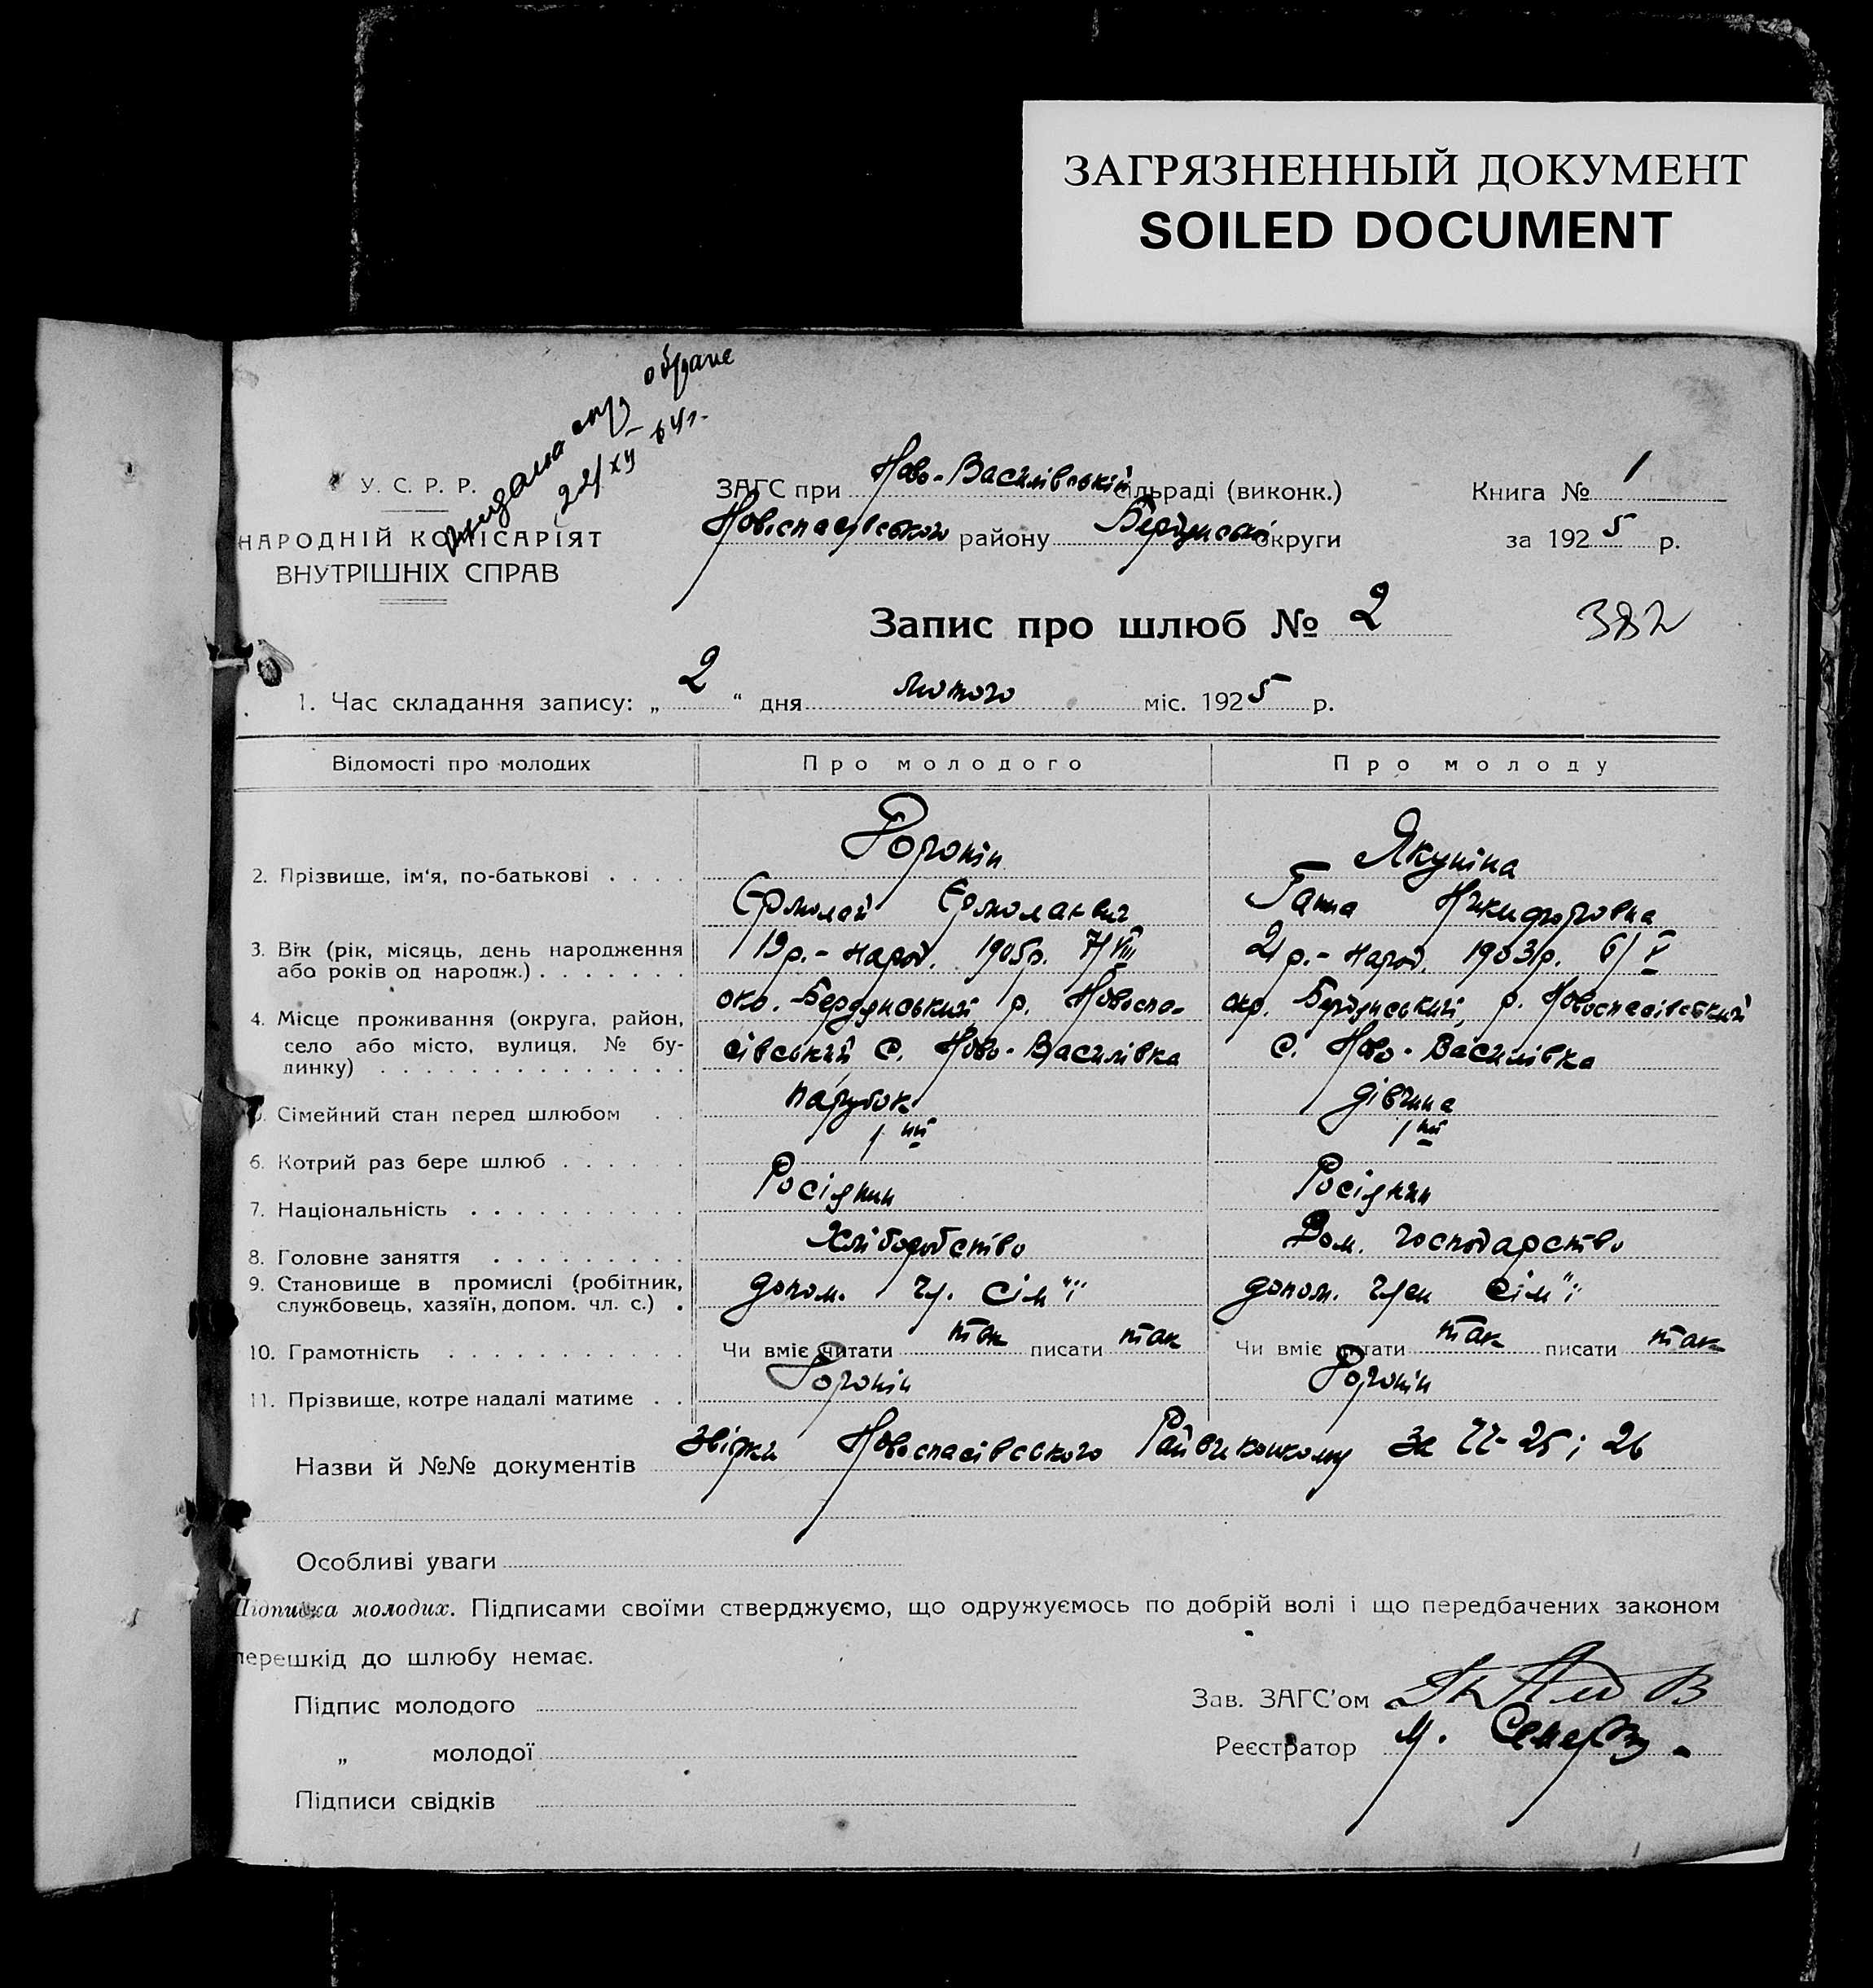 ЗАГРЯЗНЕННЫЙ ДОКУМЕНТ
SOILED DOCUMENT
22/XII 64 г.
У. С. Р. Р.
НАРОДНІЙ КОМІСАРІЯТ
ВНУТРІШНІХ СПРАВ
ЗАГС при Ново-Василівській сільраді (виконк.)
Новоспасівського району Бердянської округи
Книга № 1
за 1925 р.
Запис про шлюб № 2
382
1. Час складання запису: „ 2 “ дня лютого міс. 1925 р.
Відомості про молодих Про молодого Про молоду
2. Прізвище, ім'я, по-батькові . . . .
Воронін
Єрмолай Єрмолаевич
Якуніна
Гаша Никифоровна
3. Вік (рік, місяць, день народження
або років од народж.) . . . . . . .
19 р. - народ. 1905 р. 7/VIII
21 р. - народ. 1903 р. 6/V
4. Місце проживання (округа, район,
село або місто, вулиця, № бу-
динку) . . . . . . . . . . . . . .
окр. Бердянський р. Новоспа-
сівський с. Ново-Василівка
окр. Бердянський, р. Новоспасівський
с. Ново-Василівка
5. Сімейний стан перед шлюбом . .
парубок
дівчина
6. Котрий раз бере шлюб . . . . . .
1ий
1ий
7. Національність . . . . . . . . . .
Росіянин
Росіянин
8. Головне заняття . . . . . . . . .
Хліборобство
Дом. господарство
9. Становище в промислі (робітник,
службовець, хазяїн, допом. чл. с.) .
допом. чл. сім"ї
допом. член сім"ї
10. Грамотність . . . . . . . . . . .
Чи вміє читати так писати так
Чи вміє читати так писати так
11. Прізвище, котре надалі матиме . .
Воронін
Воронін
Назви й №№ документів Новоспасівського Райвиконкому за 25 і 26
Особливі уваги
Підписка молодих. Підписами своїми стверджуємо, що одружуємось по добрій волі і що передбачених законом
перешкід до шлюбу немає.
Підпис молодого
„ молодої
Підписи свідків
Зав. ЗАГС'ом
Реєстратор